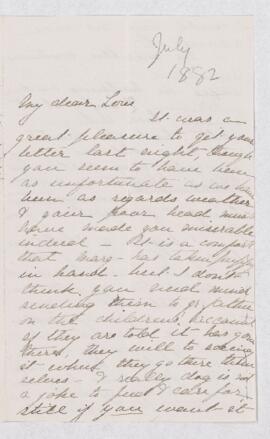 July
1882
My dear Loui
It was a
great pleasure to get your
letter last night, though
you seem to have been
as unfortunate as we have
been as regards weather
& your poor head must
have made you miserable
indeed - It is a comfort
that Mary has taken
in hand - but I don't
think you need mind
sending them to go
on the children's account
if they are told it has gone
there, they will to
it when they go there them
selves - I really dog is not
a joke to feed & care for
still if you want it